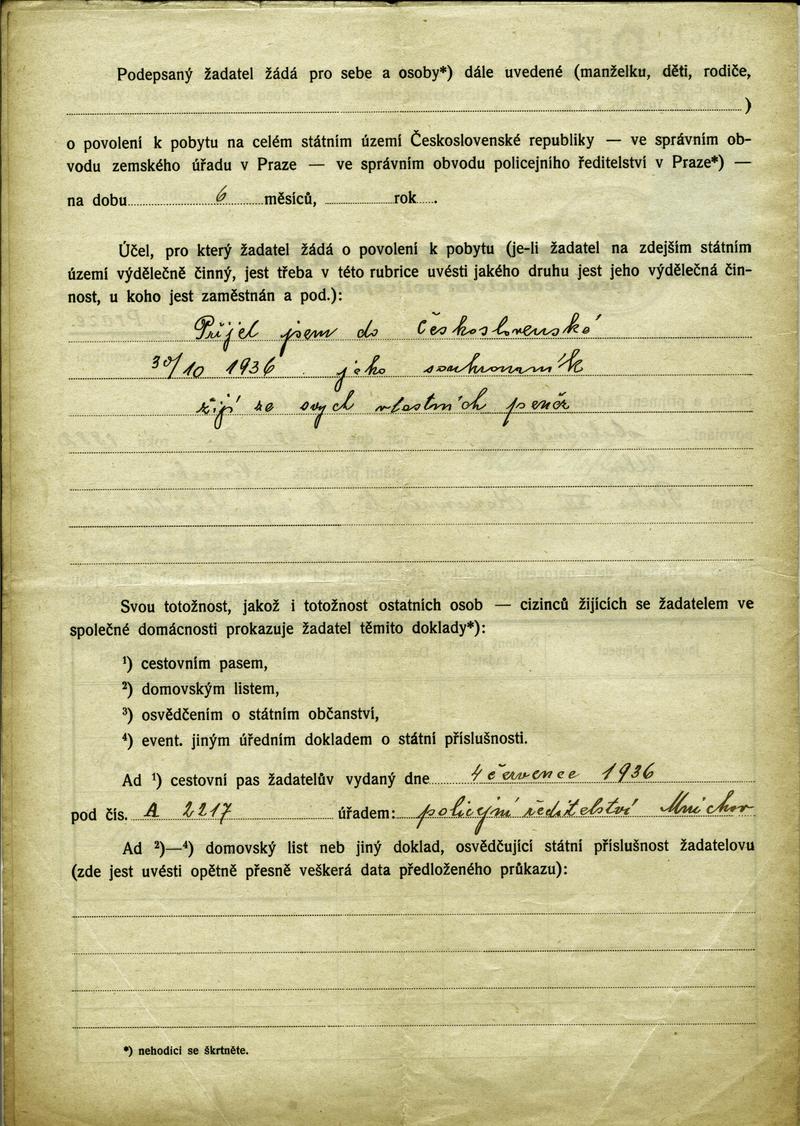 Podepsaný žadatel žádá pro sebe a osoby*) dále uvedené (manželku, děti, rodiče,
)
o povolení k pobytu na celém státním území Československé republiky — ve správním ob-
vodu zemského úřadu v Praze — ve správním obvodu policejního ředitelství v Praze*) —
na dobu 6 měsíců, rok
Účel, pro který žadatel žádá o povolení k pobytu (je-li žadatel na zdejším státním
území výdělečně činný, jest třeba v této rubrice uvésti jakého druhu jest jeho výdělečná čin-
nost, u koho jest zaměstnán a pod.):
Přijel jsem do Československé
30/10 1936 jako soukromník
žiji ze svých vlastních peněz
Svou totožnost, jakož i totožnost ostatních osob — cizinců žijících se žadatelem ve
společné domácnosti prokazuje žadatel těmito doklady*):
¹) cestovním pasem,
²) domovským listem,
³) osvědčením o státním občanství,
⁴) event. jiným úředním dokladem o státní příslušnosti.
Ad ¹) cestovní pas žadatelův vydaný dne 4 července 1936
pod čís. A 2217 úřadem: policejní ředitelství Mnichov
Ad ²)—⁴) domovský list neb jiný doklad, osvědčující státní příslušnost žadatelovu
(zde jest uvésti opětně přesně veškerá data předloženého průkazu):
*) nehodící se škrtněte.